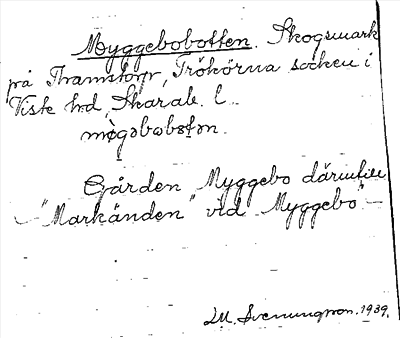 Myggebobotten. Skogsmark
på Thamstorp, Trökörna socken i
Viste hd, Skarab. l.
mỳgəbobɔtən.
Gården Myggebo därintill
"Markänden" vid Myggebo"
M. Svenungson. 1939.